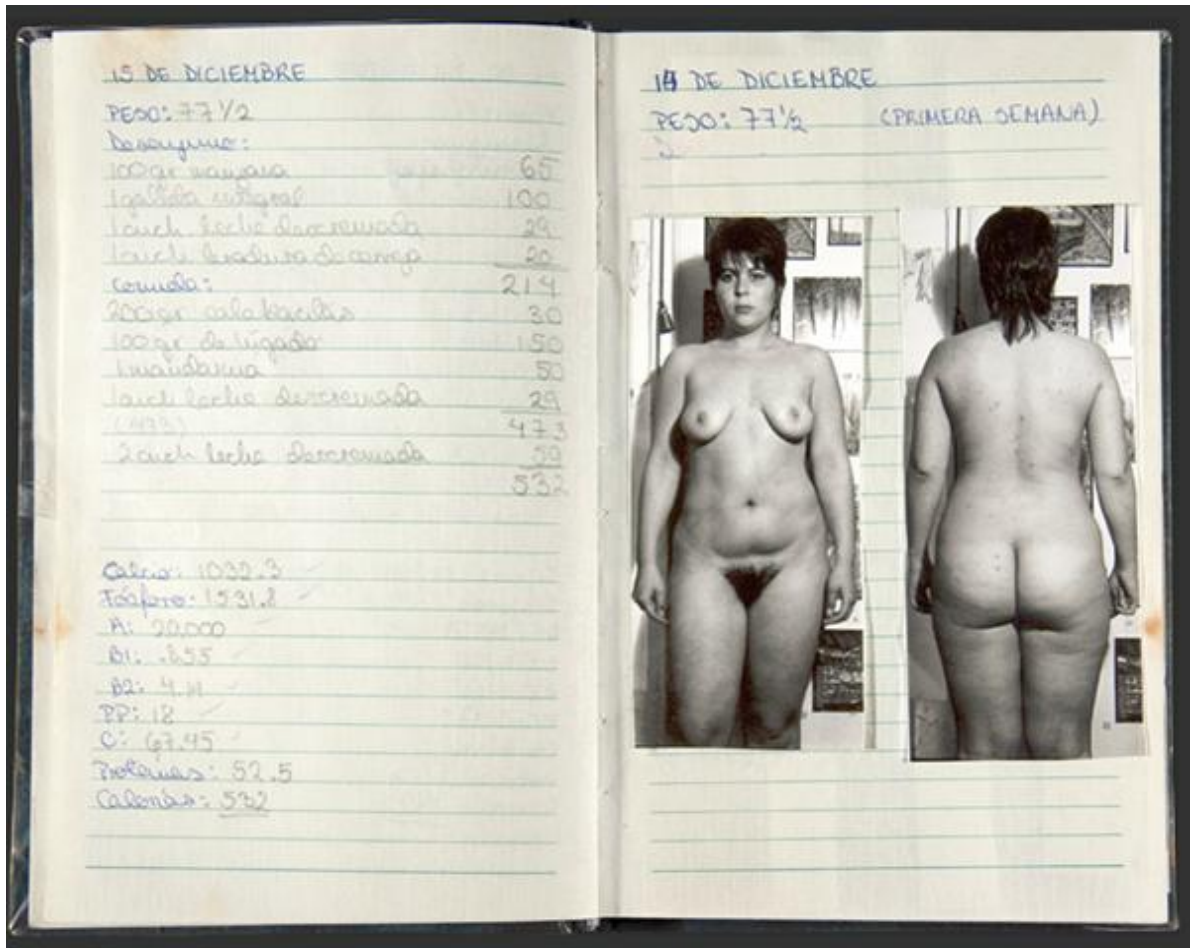 15 DE DICIEMBRE
PESO: 77 1/2
Desayuno:
100 gr manzana 65
1 galleta integral 100
1 cuch leche descremada 29
1 cuch levadura de cerveza 20
comida: 214
200 gr calabacitas 30
100 gr de hígado 150
1 mandarina 50
1 cuch leche descremada 29
(473) 473
2 cuch leche descremada 59
532
Calcio: 1032.3
Fósforo: 1531.8
A: 20,000
B1: .855
B2: 4.
PP: 18
C: 67.45
Proteínas: 52.5
Calorías: 532
14 DE DICIEMBRE
PESO: 77 1/2 (PRIMERA SEMANA)